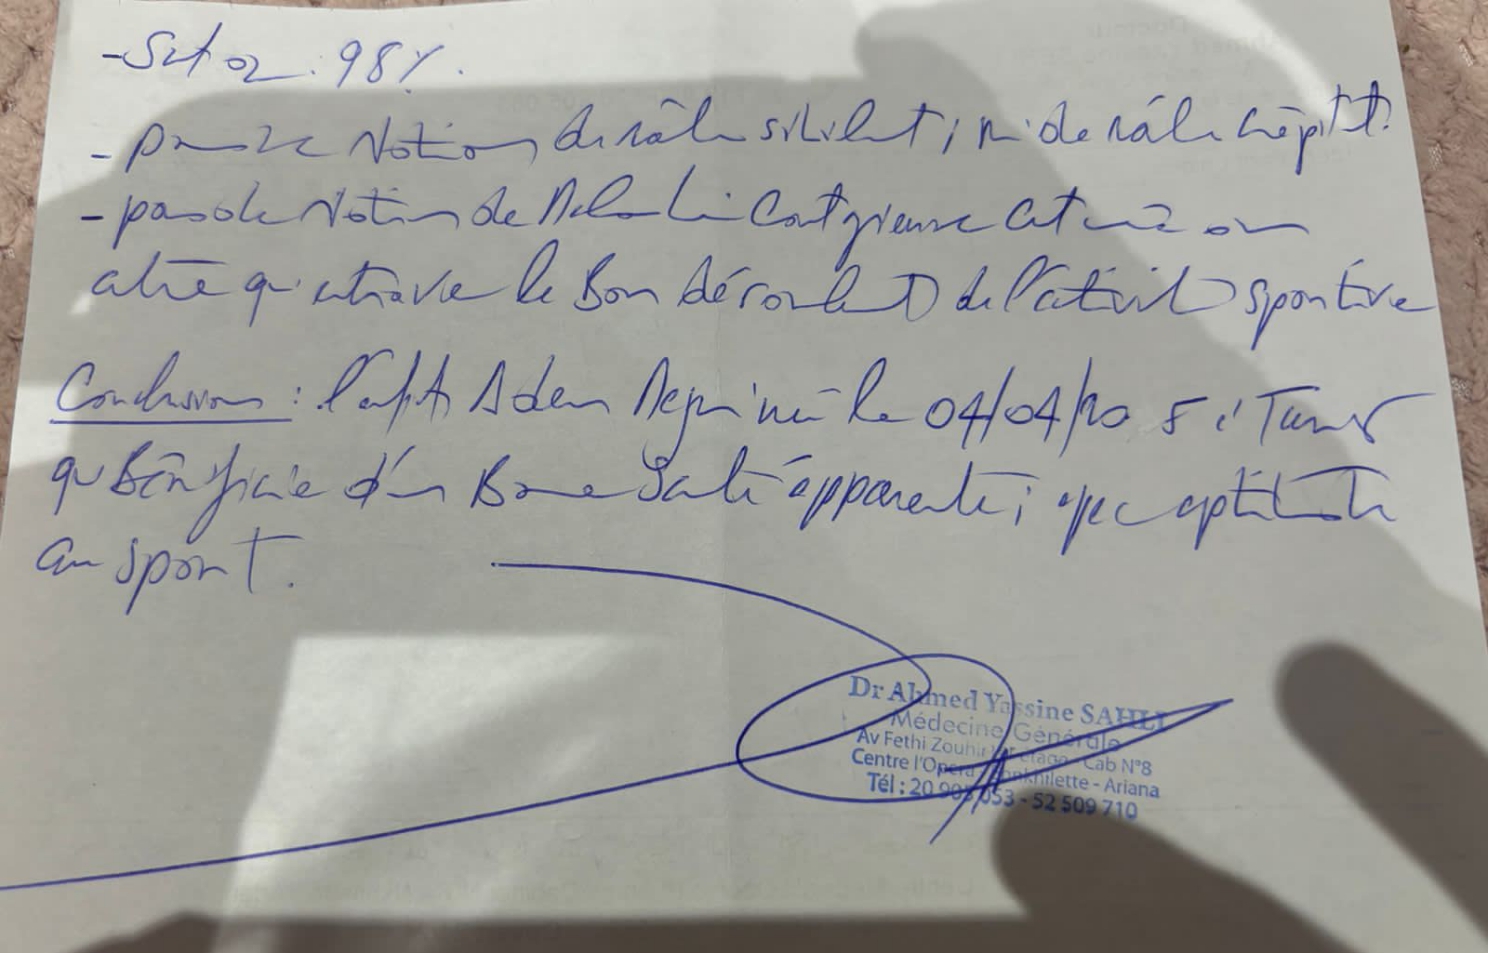 - Sat O2 : 98%.
- pas de Notion de râle sibilant, ni de râle crépitant.
- pas de Notion de Maladie Contagieuse cutanée ou
autre qui entrave le Bon déroulement de l'activité sportive
Conclusion : l'enfant Adem né le 04/04/20 5 à Tunis
qui Bénéficie d'un Bonne Santé apparente, avec aptitude
au sport.
Dr Ahmed Yassine SAHLI
Médecine Générale
Av Fethi Zouhir étage - Cab N°8
Centre l'Opera - Ariana
Tél : 20 053 - 52 509 710